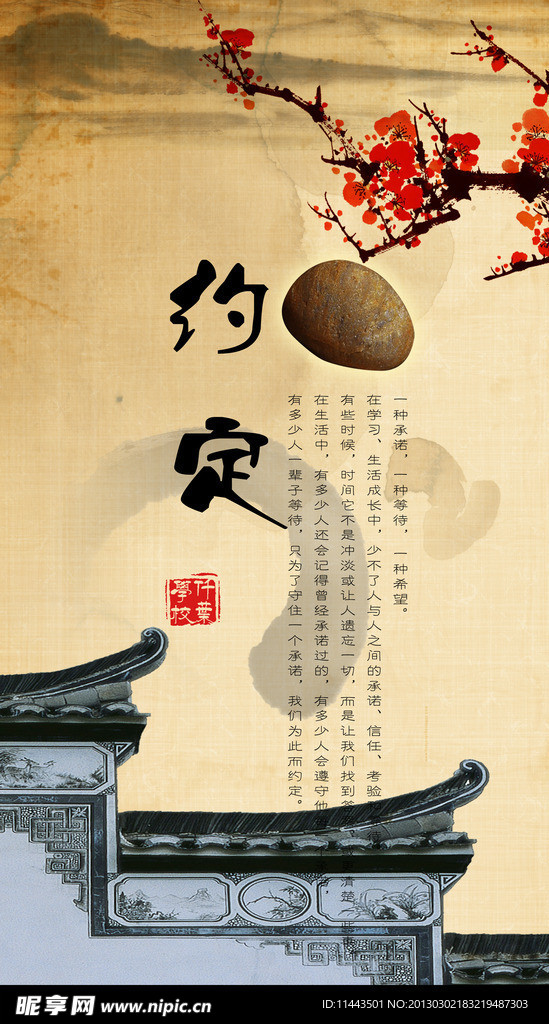 约定
一种承诺，一种等待，一种希望。
在学习、生活成长中，少不了人与人之间的承诺、信任、考验
有些时候，时间它不是冲淡或让人遗忘一切，而是让我们找到答
在生活中，有多少人还会记得曾经承诺过的，有多少人会遵守他
有多少人一辈子等待，只为了守住一个承诺，我们为此而约定。
仟叶
学校
昵享网 www.nipic.cn
ID:11443501 NO:20130302183219487303